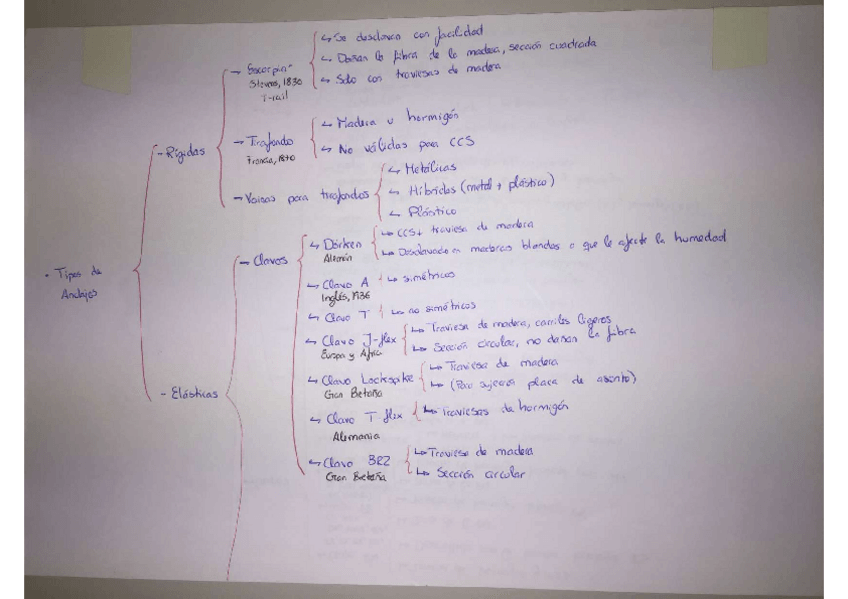 ↳ Se desclavan con facilidad
→ Escarpia
↳ Dañan la fibra de la madera, sección cuadrada
Stevens, 1830
↳ Solo con traviesas de madera
T-rail
↳ Madera u hormigón
- Rígidas
→ Tirafondo
Francia, 1870
↳ No válidas para CCS
↳ Metálicas
→ Vainas para tirafondos
↳ Híbridas (metal + plástico)
↳ Plástico
↳ CCS+ traviesa de madera
→ Clavos
↳ Dörken
Alemán
↳ Desclavado en maderas blandas o que le afecte la humedad
• Tipos de
Anclajes
↳ Clavo A
↳ simétricos
Inglés, 1936
↳ Clavo T
↳ no simétricos
↳ Clavo J-flex
↳ Traviesa de madera, carriles ligeros
Europa y África
↳ Sección circular, no dañan la fibra
- Elásticas
↳ Clavo Lockspike
↳ Traviesa de madera
Gran Bretaña
↳ (Para sujeción placa de asiento)
↳ Clavo T-flex
↳ Traviesas de hormigón
Alemania
↳ Clavo BRZ
↳ Traviesa de madera
Gran Bretaña
↳ Sección circular